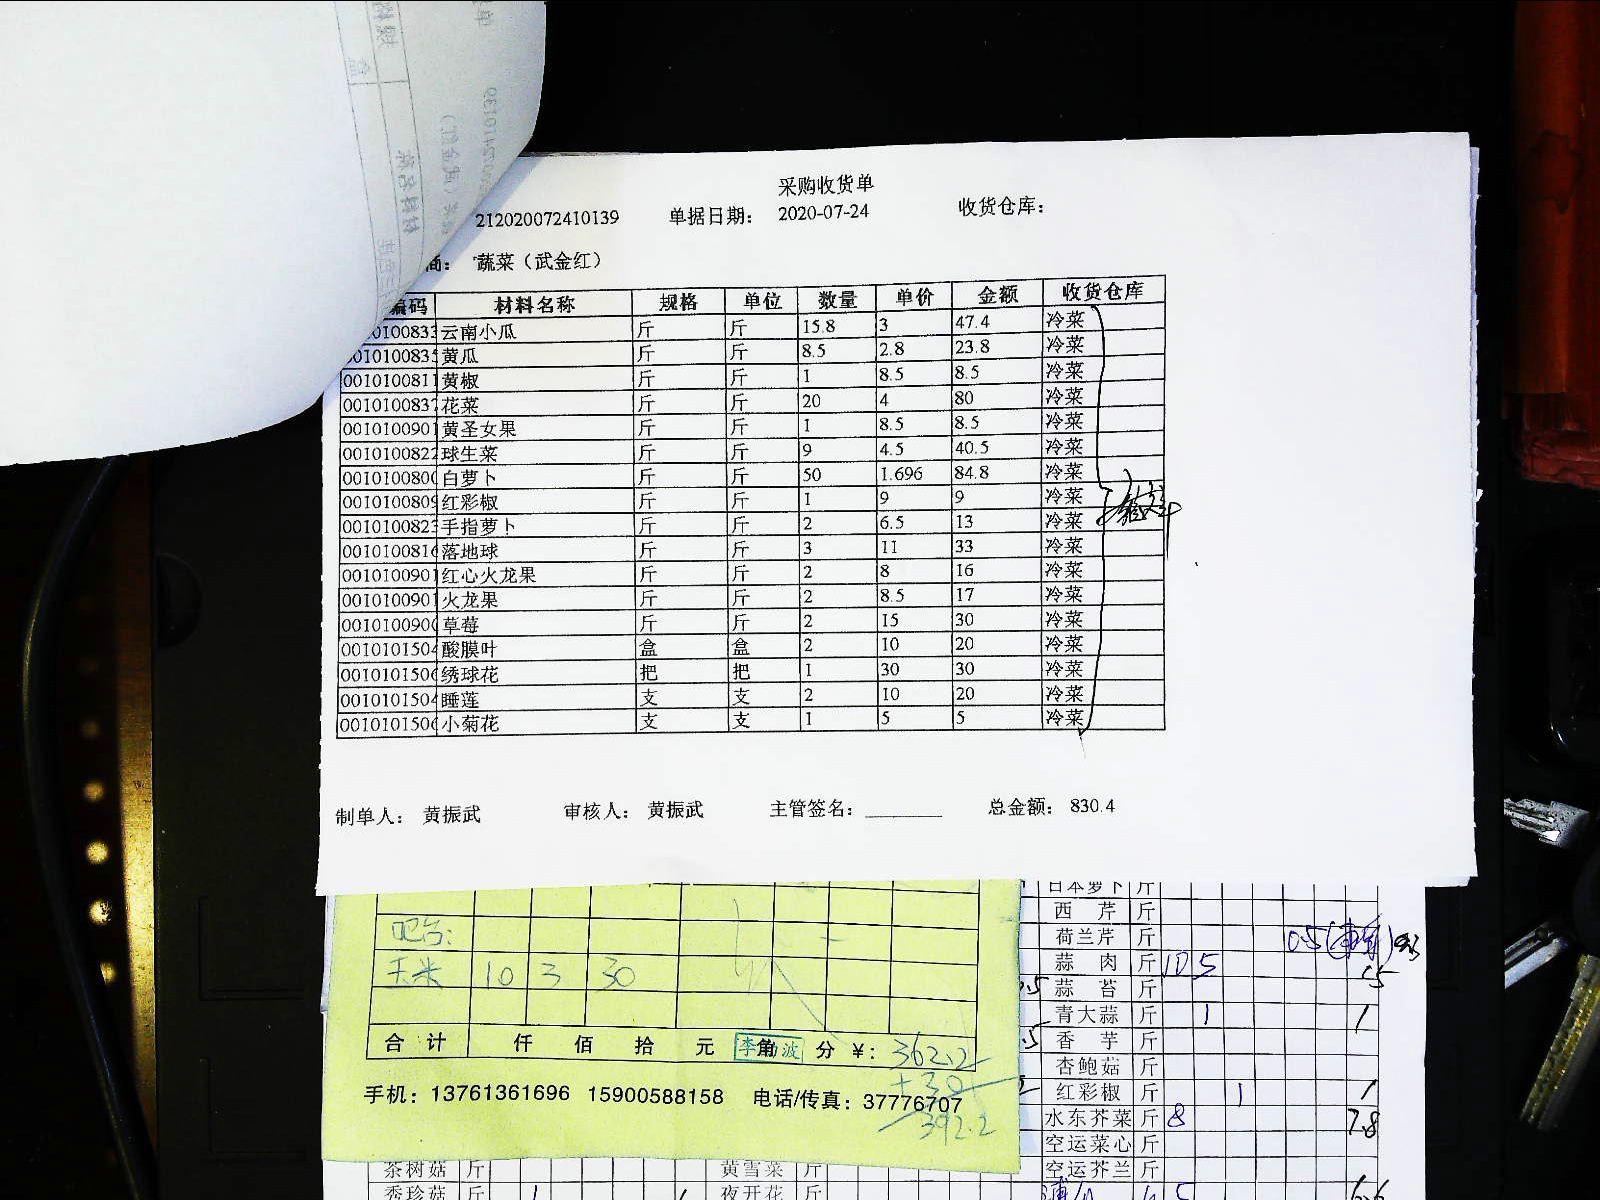 采购收货单
212020072410139 单据日期： 2020-07-24 收货仓库：
商： 蔬菜（武金红）
编码 材料名称 规格 单位 数量 单价 金额 收货仓库
云南小瓜 斤 斤 15.8 3 47.4 冷菜
黄瓜 斤 斤 8.5 2.8 23.8 冷菜
0010100811 黄椒 斤 斤 1 8.5 8.5 冷菜
001010083 花菜 斤 斤 20 4 80 冷菜
0010100901 黄圣女果 斤 斤 1 8.5 8.5 冷菜
0010100822 球生菜 斤 斤 9 4.5 40.5 冷菜
001010080 白萝卜 斤 斤 50 1.696 84.8 冷菜
0010100809 红彩椒 斤 斤 1 9 9 冷菜
001010082 手指萝卜 斤 斤 2 6.5 13 冷菜
001010081 落地球 斤 斤 3 11 33 冷菜
0010100901 红心火龙果 斤 斤 2 8 16 冷菜
0010100901 火龙果 斤 斤 2 8.5 17 冷菜
001010090 草莓 斤 斤 2 15 30 冷菜
0010101504 酸膜叶 盒 盒 2 10 20 冷菜
001010150 绣球花 把 把 1 30 30 冷菜
0010101504 睡莲 支 支 2 10 20 冷菜
001010150 小菊花 支 支 1 5 5 冷菜
制单人： 黄振武 审核人： 黄振武 主管签名： 总金额： 830.4
吧台：
玉米 10 3 30
合 计 仟 佰 拾 元 角 分 ¥： 362.2
+30
392.2
手机：13761361696 15900588158 电话/传真：37776707
日本萝卜 斤
西 芹 斤
荷兰芹 斤 0.5
蒜 肉 斤 10 5
蒜 苔 斤
青大蒜 斤 1 1
香 芋 斤
杏鲍菇 斤
红彩椒 斤 1 1
水东芥菜 斤 8 7.8
空运菜心 斤
茶树菇 斤 黄雪菜 斤 空运芥兰 斤
秀珍菇 斤 1 夜开花 斤